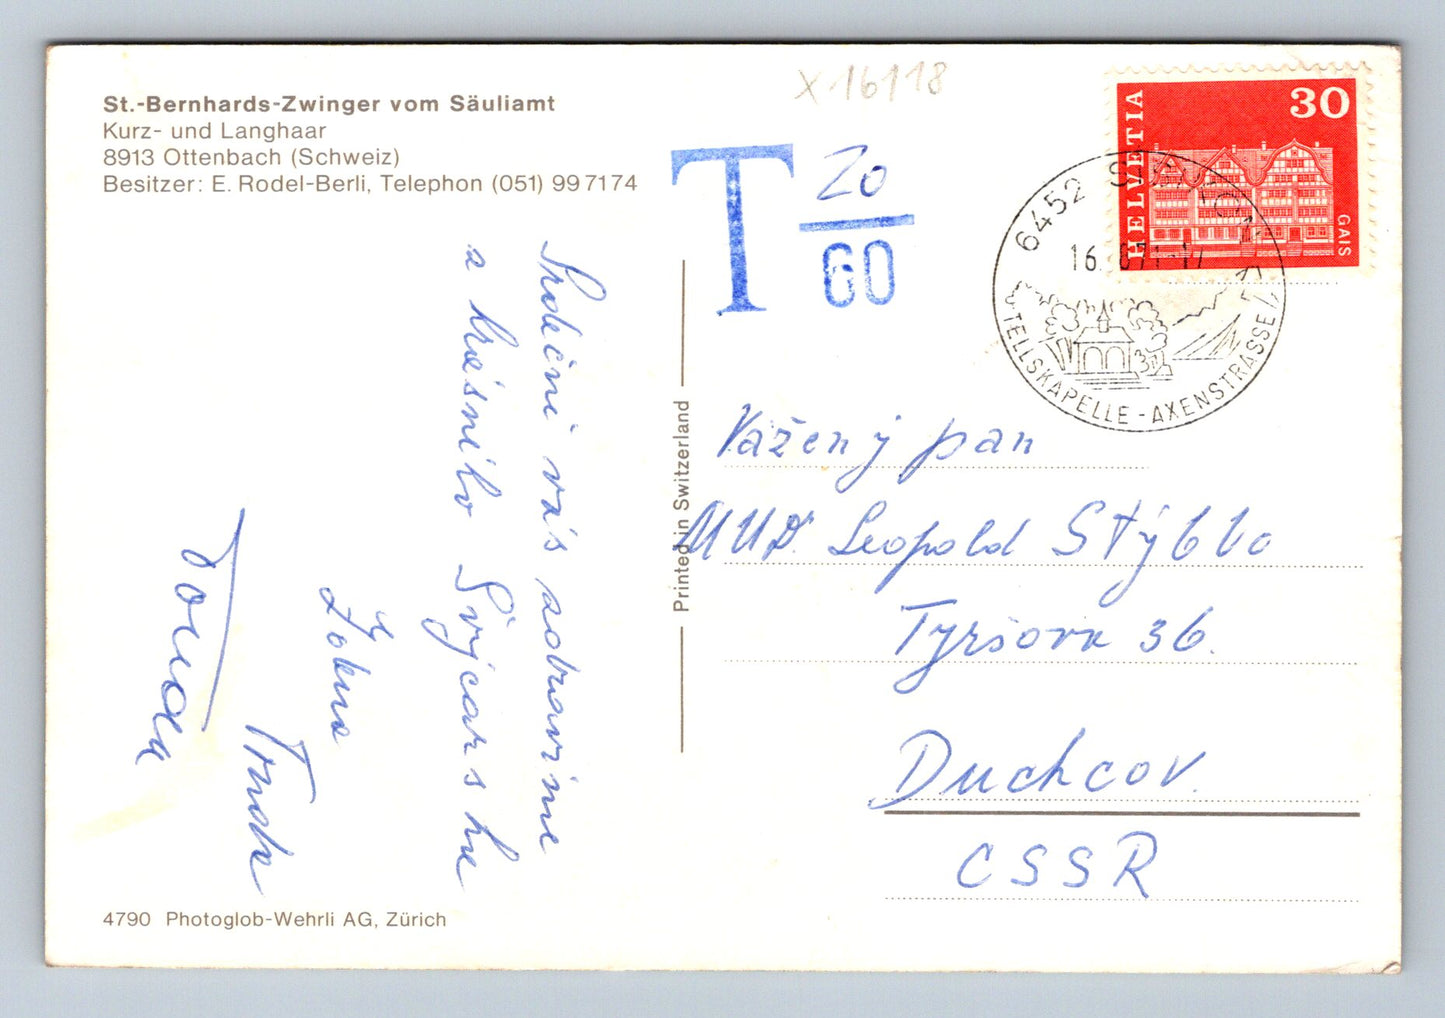 St.-Bernhards-Zwinger vom Säuliamt
Kurz- und Langhaar
8913 Ottenbach (Schweiz)
Besitzer: E. Rodel-Berli, Telephon (051) 99 71 74
X 16118
T 20
60
HELVETIA
30
GAIS
6452
16.
TELLSKAPELLE - AXENSTRASSE
Srdečně vás zdravíme
a krásného Švýcarska
Tonda
Printed in Switzerland
Vážený pan
MUDr. Leopold Stýblo
Tyršova 36.
Duchcov.
CSSR
4790 Photoglob-Wehrli AG, Zürich